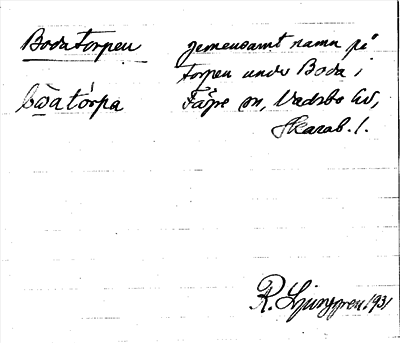 Bodatorpen
gemensamt namn på
torpen under Boda i
bωatórpa
Fägre sn, Vadsbo hd,
Skarab. l.
R. Ljunggren 1931